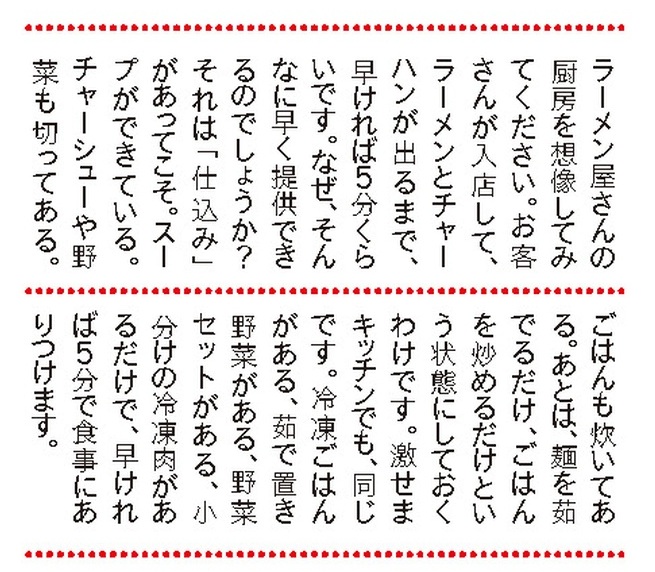 ラーメン屋さんの
厨房を想像してみ
てください。お客
さんが入店して、
ラーメンとチャー
ハンが出るまで、
早ければ5分くら
いです。なぜ、そん
なに早く提供でき
るのでしょうか?
それは「仕込み」
があってこそ。スー
プができている。
チャーシューや野
菜も切ってある。
ごはんも炊いてあ
る。あとは、麺を茹
でるだけ、ごはん
を炒めるだけとい
う状態にしておく
わけです。激せま
キッチンでも、同じ
です。冷凍ごはん
がある、茹で置き
野菜がある、野菜
セットがある、小
分けの冷凍肉があ
るだけで、早けれ
ば5分で食事にあ
りつけます。